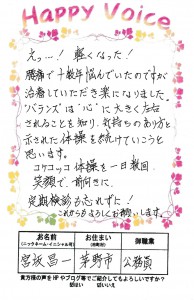 Happy Voice
えっ…！軽くなった！
腰痛で十数年悩んでいたのですが
治療していただき楽になりました。
"バランス"は"心"に大きく左右
されることを知り、気持ちのあり方と
示された体操を続けていこうと
思います。
コツコツ体操を一日数回、
笑顔で、前向きに、
定期検診も忘れずに！
これからもよろしくお願いします。
お名前 お住まい 御職業
(ニックネーム・イニシャル可) (市町村)
宮坂 昌一 茅野市 公務員
貴方様の声をHPやブログ等でご紹介してもよろしいですか？
はい いいえ